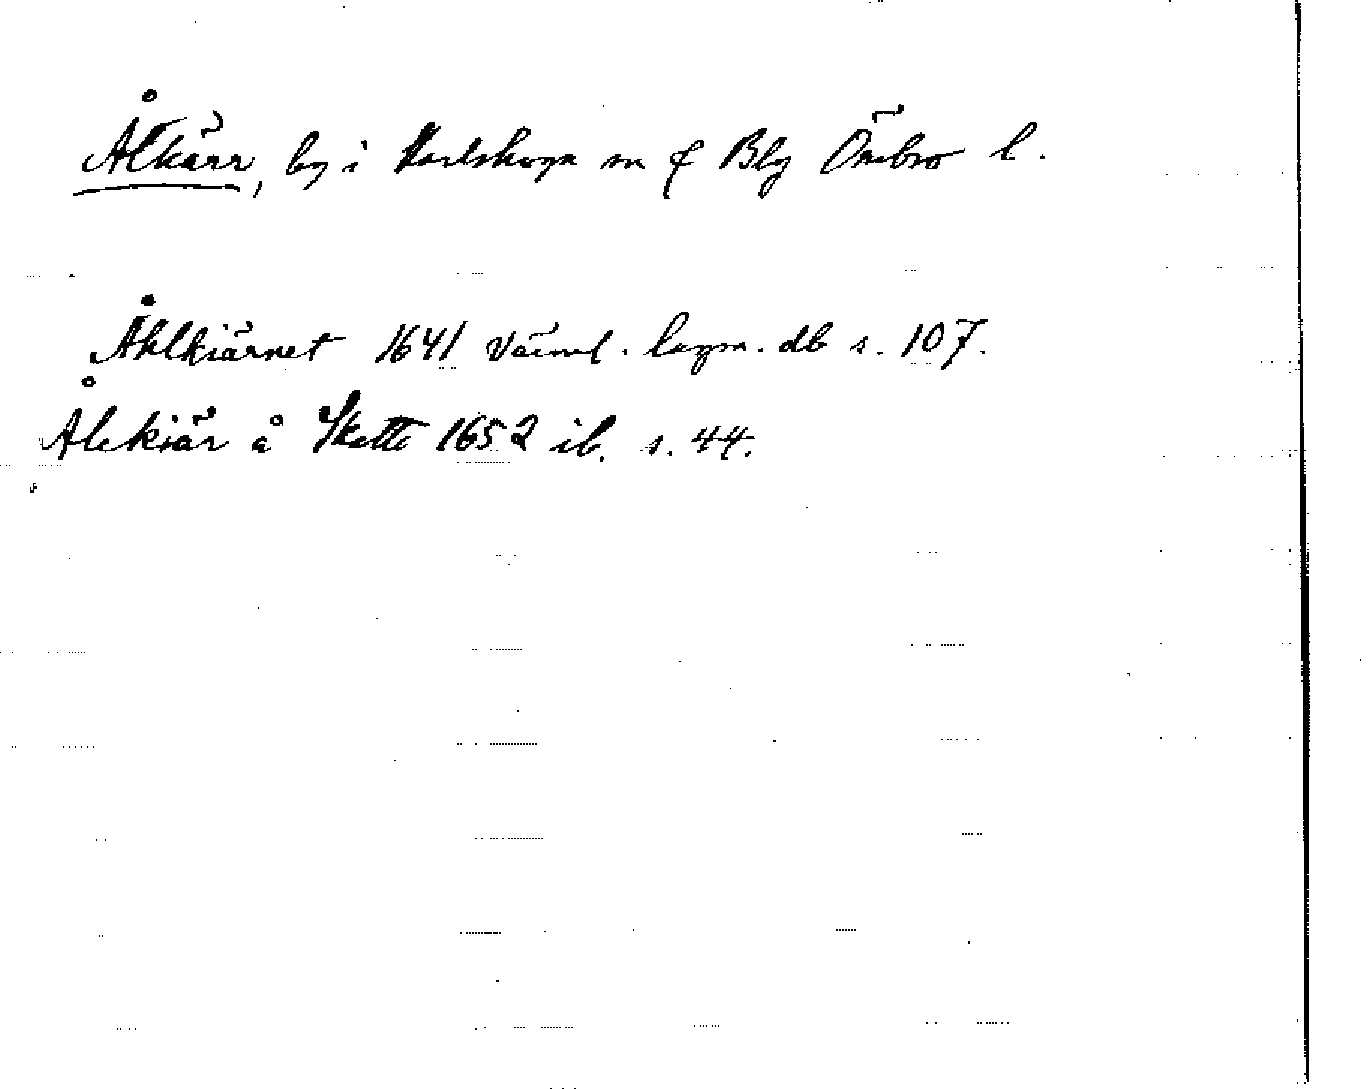 Ålkärr, by i Karlskoga sn o Blg Örebro l.
Åhlkiärnet 1641 Värml. lagm. db s. 107.
Ålekiär å Skatte 1652 ib. s. 44.